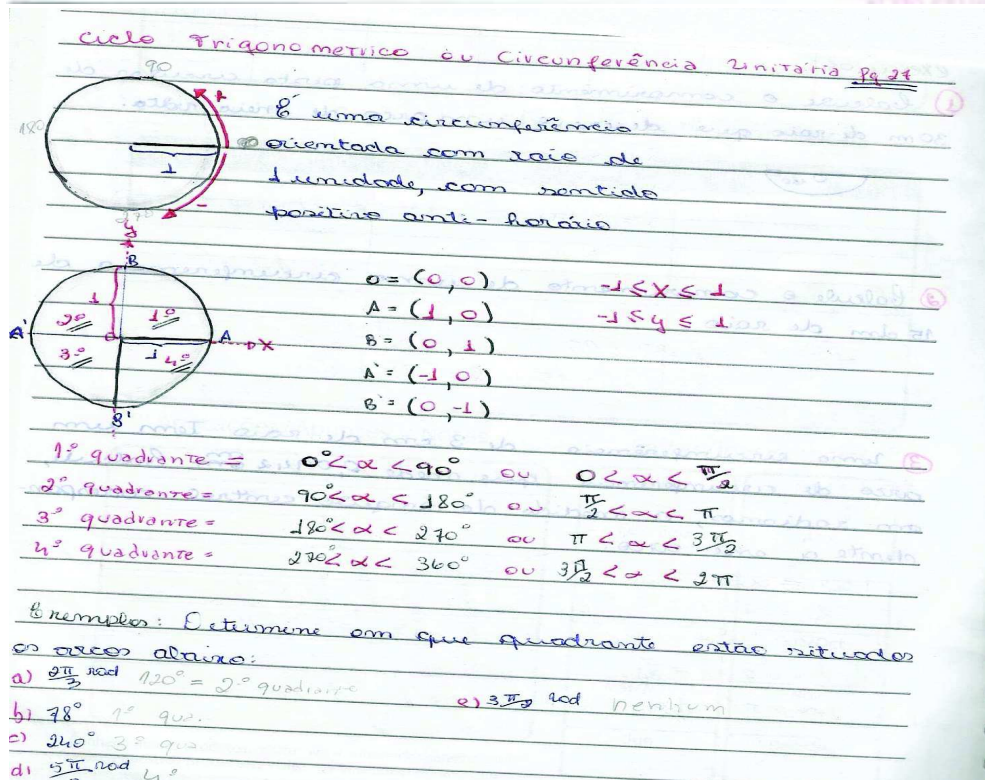 Ciclo Trigonometrico ou Circunferência Unitária Pg 27
90
180
+
1
-
270
É uma circunferência
orientada com raio de
1 unidade, com sentido
positivo anti-horário
y
B
1
2º 1º
A' 0 A X
3º 1 4º
B'
O = (0, 0) -1 ≤ X ≤ 1
A = (1, 0) -1 ≤ y ≤ 1
B = (0, 1)
A' = (-1, 0)
B' = (0, -1)
1º quadrante = 0° < α < 90° ou 0 < α < π/2
2º quadrante = 90° < α < 180° ou π/2 < α < π
3º quadrante = 180° < α < 270° ou π < α < 3π/2
4º quadrante = 270° < α < 360° ou 3π/2 < α < 2π
Exemplos: Determine em que quadrante estão situados
os arcos abaixo:
a) 2π/3 rad 120° = 2º quadrante e) 3π/2 rad nenhum
b) 78° 1º qua.
c) 240° 3º qua
d) 5π rad 4º